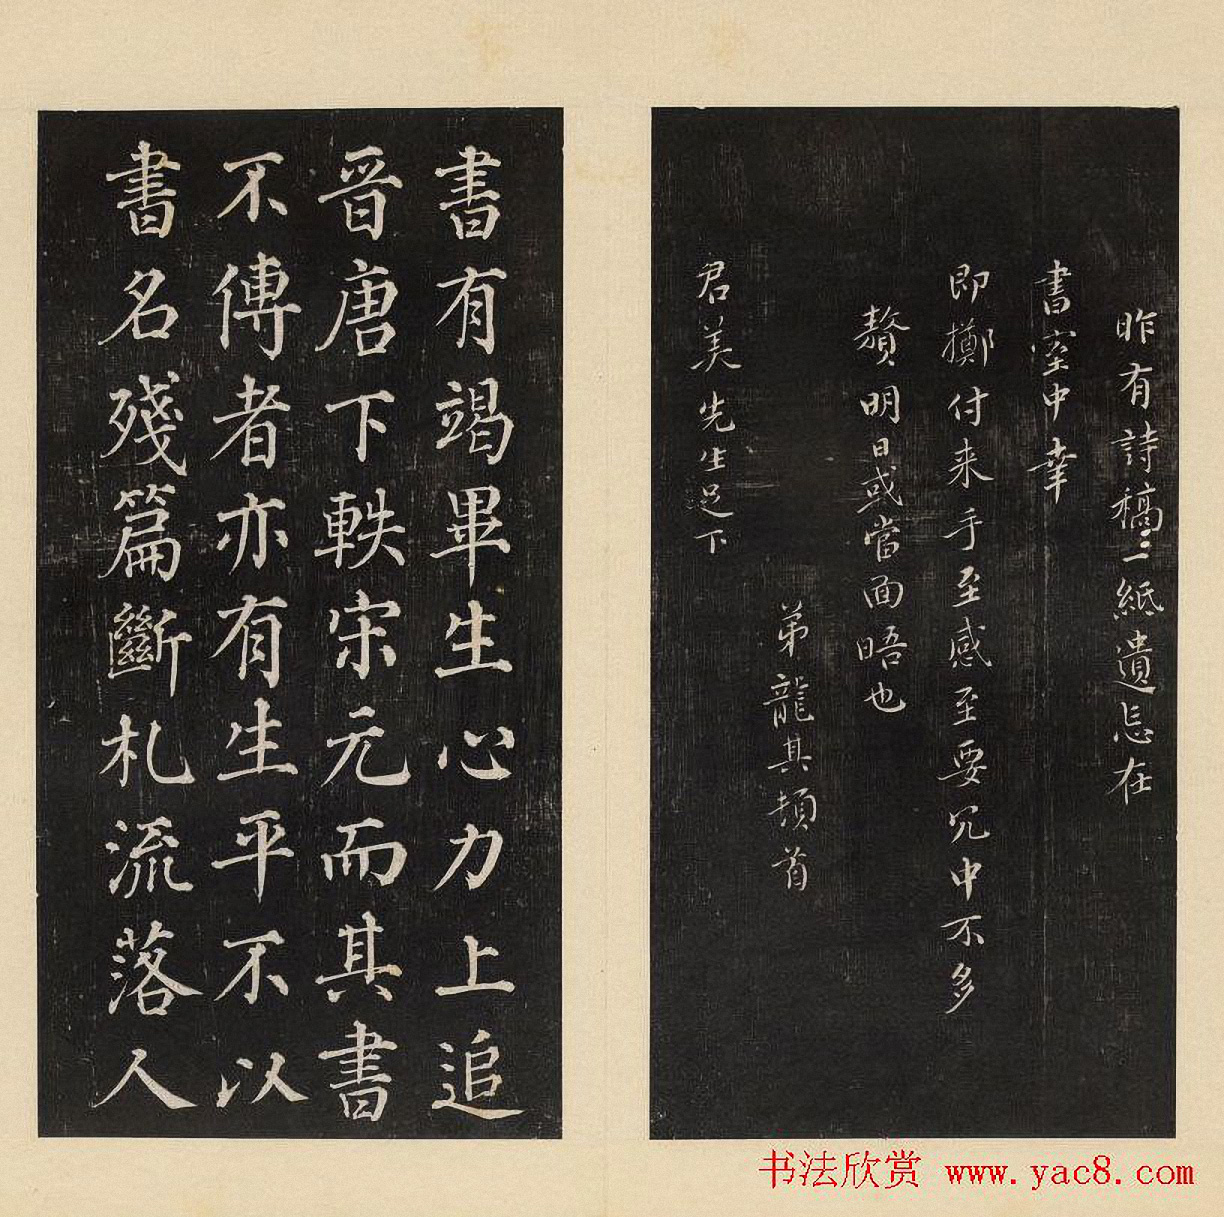 昨有詩稿三紙遺忘在
書室中幸
即擲付来手至感至要冗中不多
贅明日或當面晤也
弟龍其頓首
君美先生足下
書有竭畢生心力上追
晉唐下軼宋元而其書
不傳者亦有生平不以
書名殘篇斷札流落人
书法欣赏 www.yac8.com